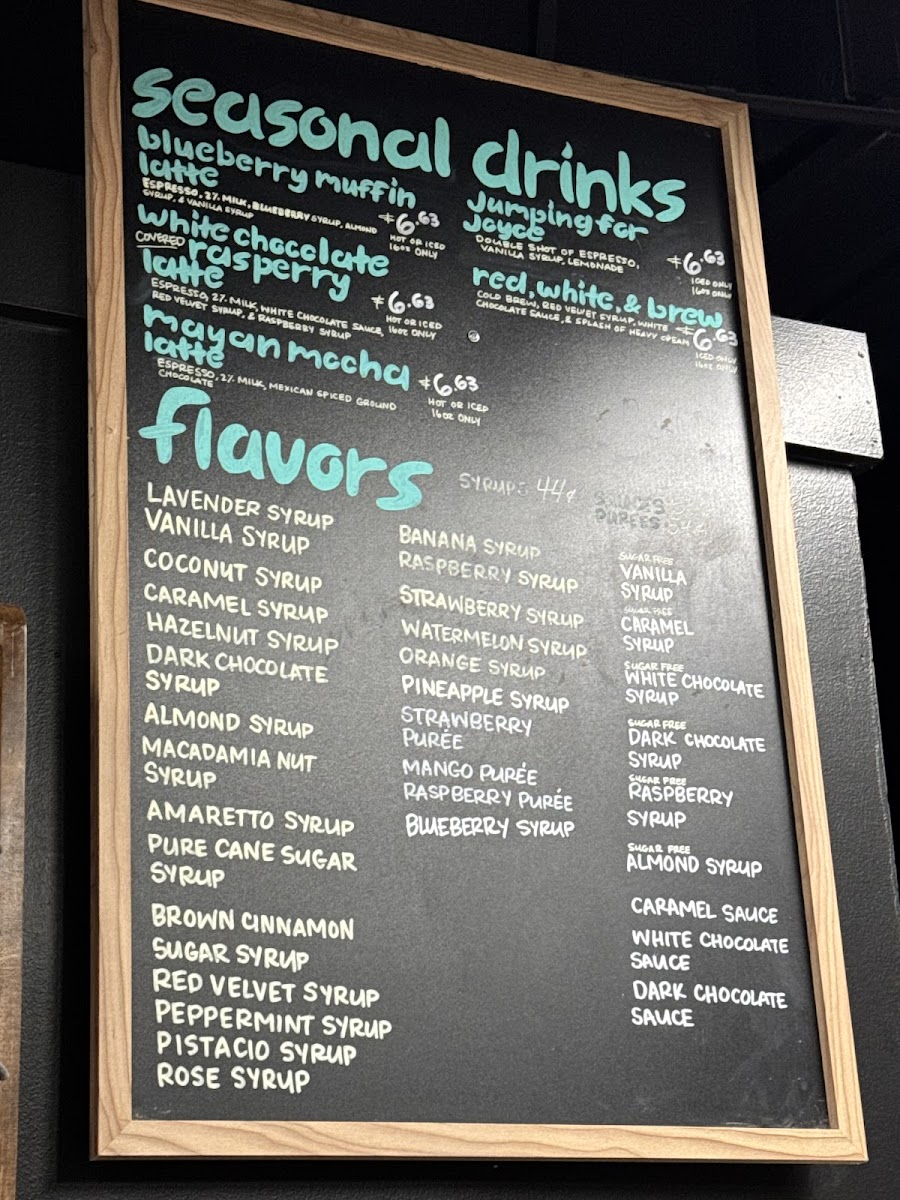 seasonal drinks
blueberry muffin
latte
ESPRESSO, 2% MILK, BLUEBERRY SYRUP, ALMOND
SYRUP, & VANILLA SYRUP
$6.63
HOT OR ICED
16oz ONLY
white chocolate
COVERED rasperry
latte
ESPRESSO, 2% MILK, WHITE CHOCOLATE SAUCE,
RED VELVET SYRUP, & RASPBERRY SYRUP
$6.63
HOT OR ICED
16oz ONLY
mayan mocha
latte
ESPRESSO, 2% MILK, MEXICAN SPICED GROUND
CHOCOLATE
$6.63
HOT OR ICED
16oz ONLY
Jumping for
Joyce
DOUBLE SHOT OF ESPRESSO,
VANILLA SYRUP, LEMONADE
$6.63
ICED ONLY
16oz ONLY
red, white, & brew
COLD BREW, RED VELVET SYRUP, WHITE
CHOCOLATE SAUCE, & SPLASH OF HEAVY CREAM
$6.63
ICED ONLY
16oz ONLY
flavors
SYRUPS 44¢
PUREES
LAVENDER SYRUP
VANILLA SYRUP
COCONUT SYRUP
CARAMEL SYRUP
HAZELNUT SYRUP
DARK CHOCOLATE
SYRUP
ALMOND SYRUP
MACADAMIA NUT
SYRUP
AMARETTO SYRUP
PURE CANE SUGAR
SYRUP
BROWN CINNAMON
SUGAR SYRUP
RED VELVET SYRUP
PEPPERMINT SYRUP
PISTACIO SYRUP
ROSE SYRUP
BANANA SYRUP
RASPBERRY SYRUP
STRAWBERRY SYRUP
WATERMELON SYRUP
ORANGE SYRUP
PINEAPPLE SYRUP
STRAWBERRY
PURÉE
MANGO PURÉE
RASPBERRY PURÉE
BLUEBERRY SYRUP
SUGAR FREE
VANILLA
SYRUP
SUGAR FREE
CARAMEL
SYRUP
SUGAR FREE
WHITE CHOCOLATE
SYRUP
SUGAR FREE
DARK CHOCOLATE
SYRUP
SUGAR FREE
RASPBERRY
SYRUP
SUGAR FREE
ALMOND SYRUP
CARAMEL SAUCE
WHITE CHOCOLATE
SAUCE
DARK CHOCOLATE
SAUCE